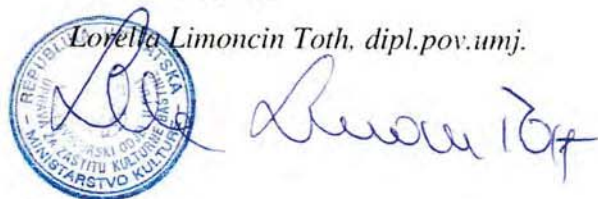 Lorella Limoncin Toth, dipl.pov.umj.
REPUBLIKA HRVATSKA
MINISTARSTVO KULTURE
ZA ZAŠTITU KULTURNE BAŠTINE
Limoncin Toth